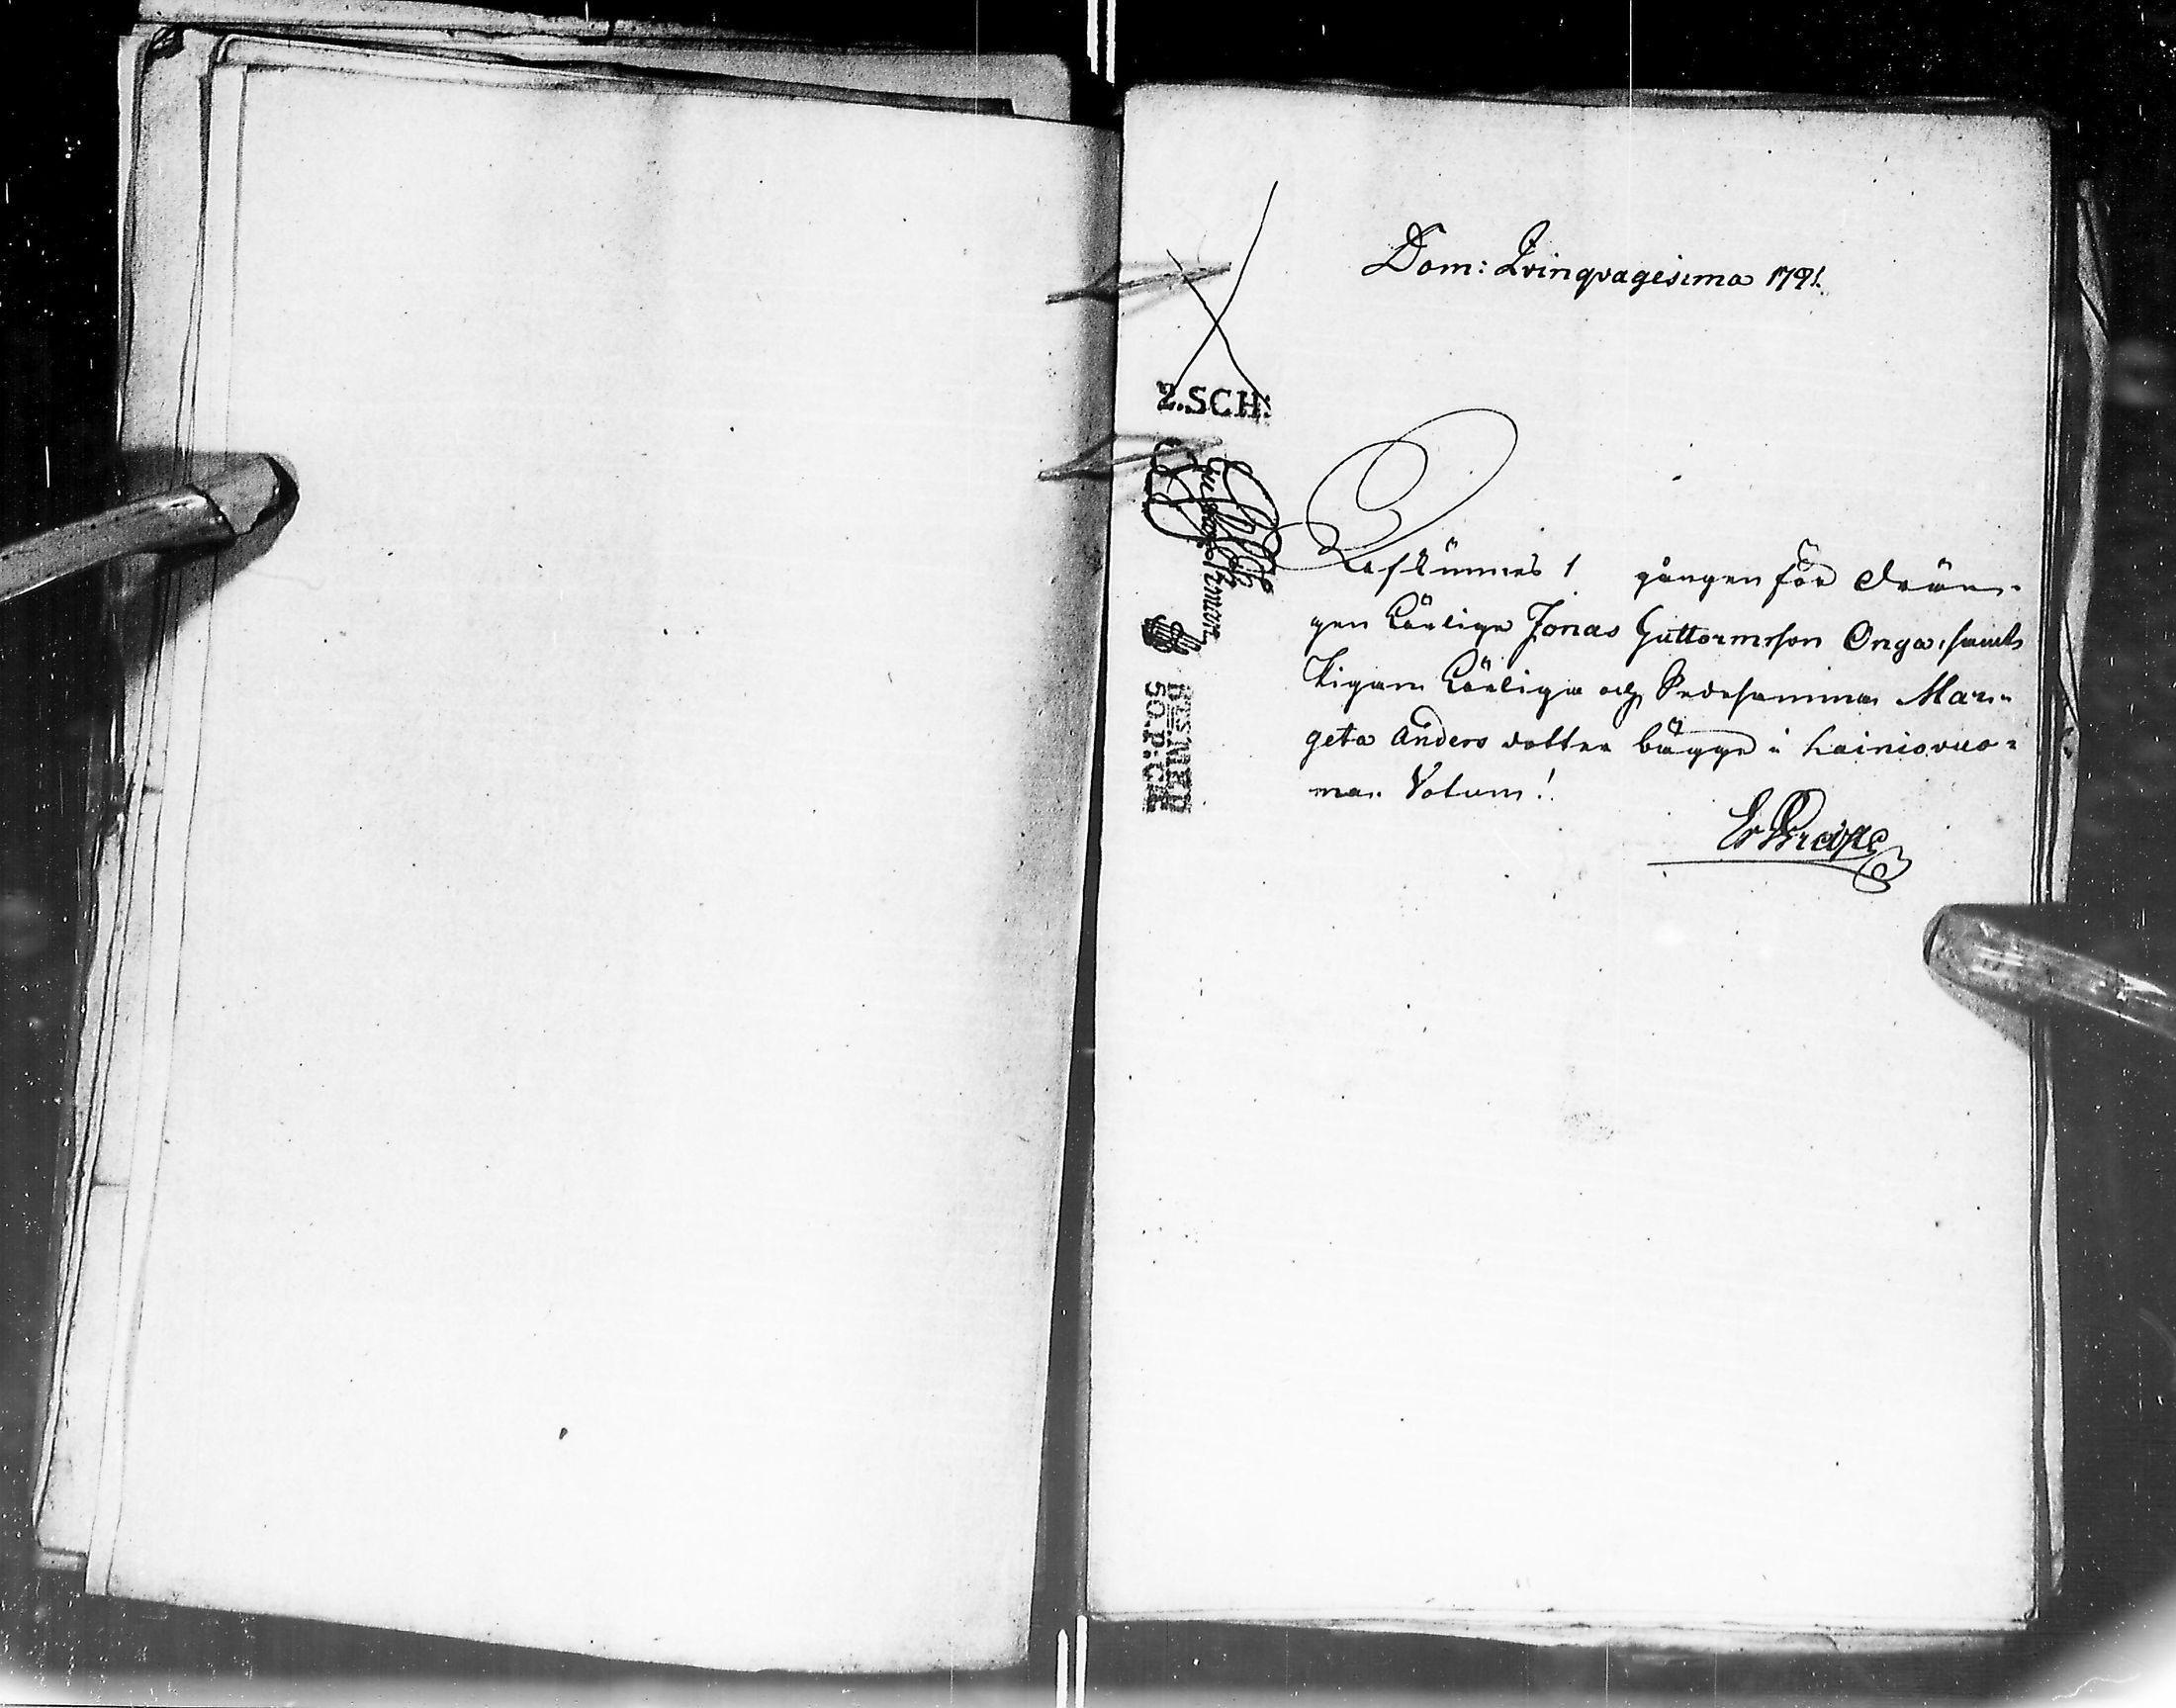 Dom: Qvinqvagesima 1791.
2.SCH:
Afkunnes 1 gången för drän-
gen Ärlige Jonas Guttormsson Onga, samt
Pigan Ärliga och Dydesamma Mar-
geta Anders dotter bägge i Lainiovuo-
ma. Votum!